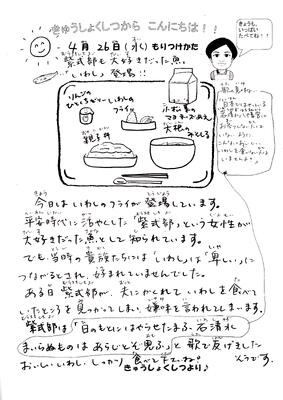 きゅうしょくしつから こんにちは！！
きょうも、
いっぱい
たべてね！！
4月26日(水) もりつけかた
紫式部も大好きだった魚。
いわし 登場!!
りんごの
ひとくちゼリー
いわしの
フライ
小松菜の
マヨネーズあえ
親子丼
大根の
みそしる
今日はいわしのフライが登場しています。
平安時代に活やくした「紫式部」という女性が
大好きだった魚として知られています。
でも当時の貴族たちには「いわし」は「卑しい」に
つながるとされ、好まれていませんでした。
ある日紫式部が、夫にかくれていわしを食べて
いたところを見つかってしまい、嫌味を言われてしまいます。
紫式部は「日のもとにはやらせたまふ、石清水
まいらぬものはあらじとぞ思ふ」と歌で返しました
そうです。
おいしいいわし、しっかり食べて下さいね。
きゅうしょくしつより♪